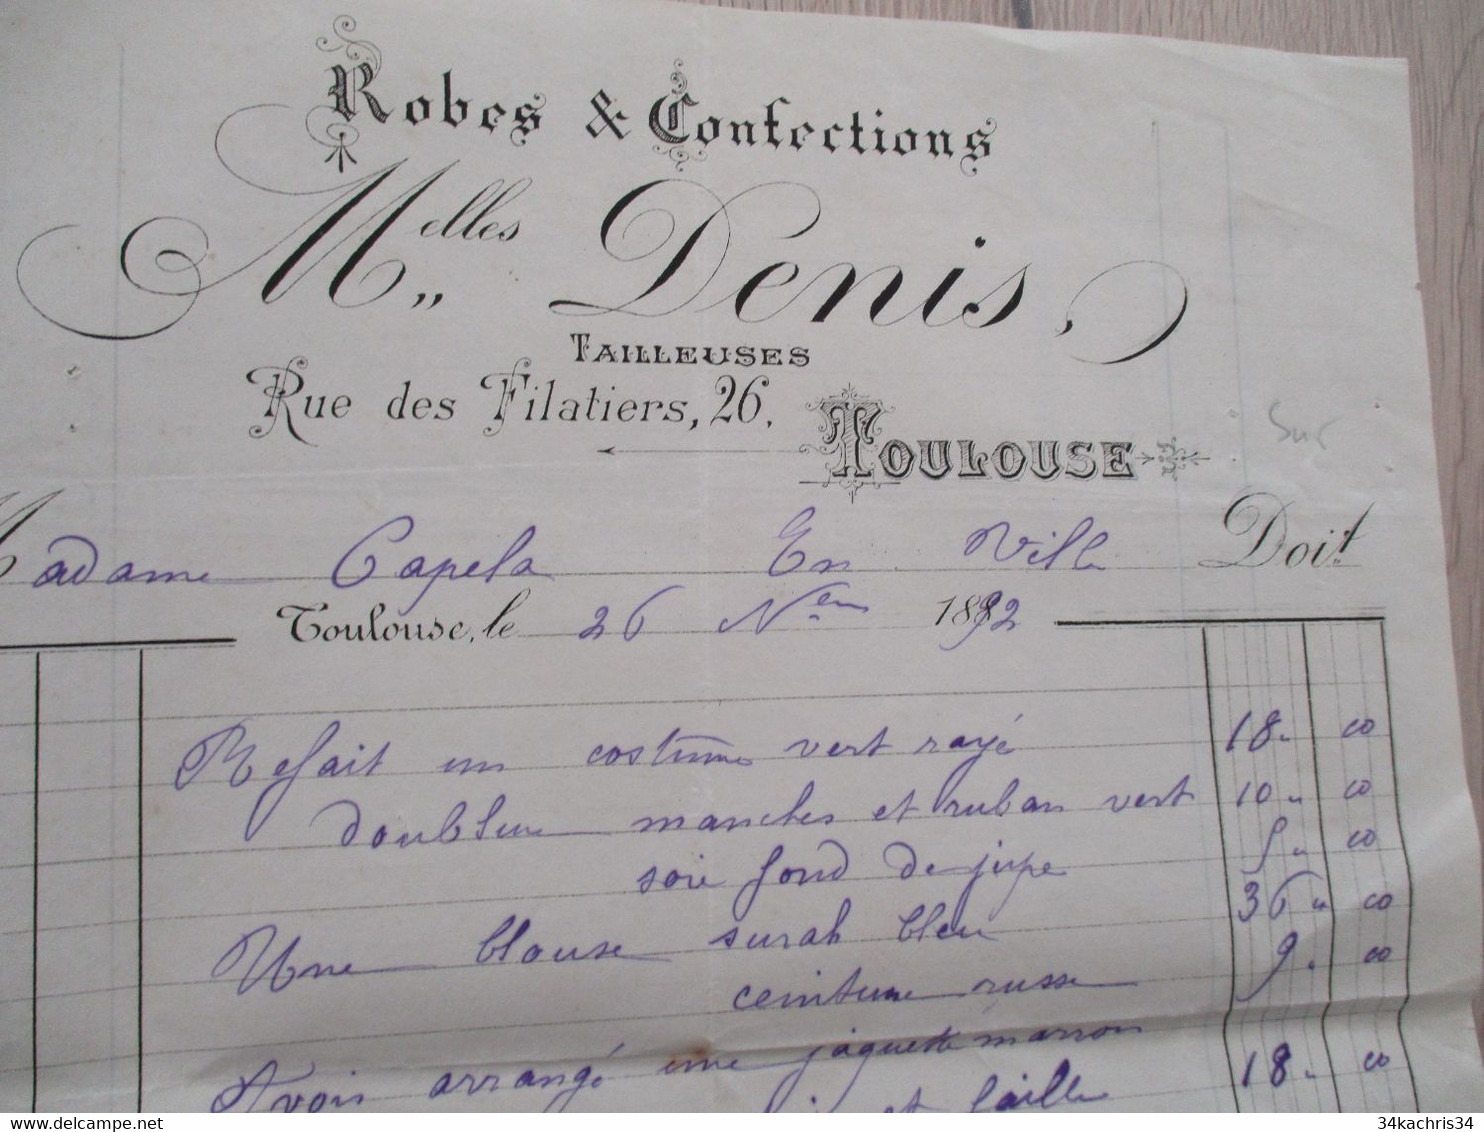 Robes & Confections
Melles Denis,
TAILLEUSES
Rue des Filatiers, 26.
TOULOUSE
Sur
Madame Capela En Ville Doit
Toulouse, le 26 Nem 1892
Refait un costume vert rayé 18 00
doublure manches et ruban vert 10 00
soie fond de jupe 5 00
Une blouse surah bleu 36 00
ceinture russe 9 00
Avoir arrangé une jaquette marron
et faille 18 00
34kachris34